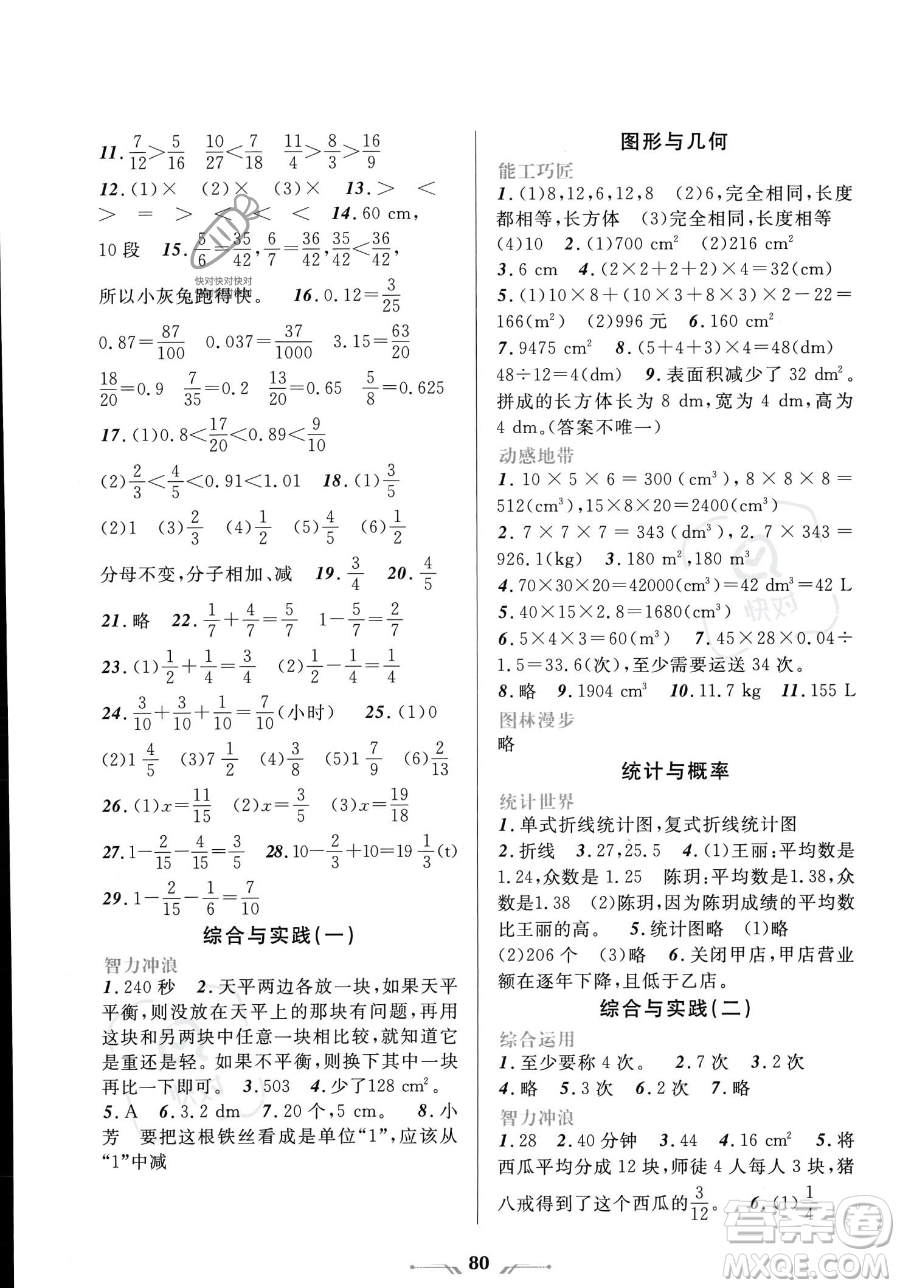 11. 7/12>5/16 10/27<7/18 11/4>16/9
12. (1)× (2)× (3)× 13. > <
> = > < < 14. 60 cm,
10 段 15. 5/6=35/42, 6/7=36/42, 35/42<36/42,
所以小灰兔跑得快。 16. 0.12=3/25
0.87=87/100 0.037=37/1000 3.15=63/20
18/20=0.9 7/35=0.2 20/50=0.4 5/8=0.625
17. (1)0.8<17/20<0.89<9/10
(2)2/3<4/5<0.91<1 18. (1)4/5
(2)1 (3)2/7 (4)1/2 (5)4/5 (6)1/2
分母不变,分子相加、减 19. 3/4 20. 4/5
21. 略 22. 1/7+4/7=5/7 1-5/7=2/7
23. (1)1/2+1/2=1 (2)1/4+1/4=1/2
24. 3/10+3/10+4/10=1(小时) 25. (1)0
(2)4/5 (3)7/9 (4)3/8 (5)1 (6)2/5
26. (1)x=11/15 (2)x=3/5 (3)x=19/18
27. 1-2/15-4/15=9/15 28. 10-2/3+10=19 1/3(t)
29. 1-2/15-1/6=7/10
综合与实践(一)
智力冲浪
1. 240 秒 2. 天平两边各放一块,如果天平
平衡,则没放在天平上的那块有问题,再用
这块和另两块中任意一块相比较,就知道
是重还是轻。如果不平衡,换其中一块
再比一下即可。 3. 503 4. 少了128 cm²。
5. A 6. 3.2 dm 7. 20 个 8. 小
芳 要把这根铁丝看成是单位“1”,应该从
“1”中减
图形与几何
能工巧匠
1. (1)8,12,6,12,8 (2)6,完全相同,长度
都相等,长方体 (3)完全相同,长度相等
(4)10 2. (1)700 cm² (2)216 cm²
3. 6 cm 4. (2×2+2+2)×4=32(dm²)
5. (1)10×8+(10×3+8×3)×2-22=
166(m²) (2)996 元 6. 160 cm²
7. 9475 cm² 8. (5+4+3)×4=48(dm)
48÷12=4(dm) 9. 表面积减少了 32 dm²。
拼成的长方体长为 8 dm,宽为 4 dm,高为
4 dm。(答案不唯一)
动感地带
1. 10×5×6=300(cm³) 8×8×8=
512(cm³),15×8×20=2400(cm³)
2. 7×7×7=343(dm³) 2.7×343=
926.1(kg) 3. 180 m²,180 m³
4. 70×30×20=42000(cm³)=42 dm³=42 L
5. 40×15×2.8=1680(cm³)
6. 5×4×3=60(cm³) 7. 45×28×0.04÷
1.5=33.6(次),至少需要运送 34 次。
8. 略 9. 1904 cm³ 10. 11.7 kg 11. 155 L
图林漫步
略
统计与概率
统计世界
1. 单式折线统计图,复式折线统计图
2. 折线 3. 27,25.5 4. (1)王丽:平均数是
1.24,众数是 1.25 陈玥:平均数是1.38,众
数是1.38 (2)陈玥,因为陈玥成绩的平均数
比王丽的高。 5. 统计图略 (1)205
(2)206 个 (3)略 6. 关闭甲店,甲店营业
额在逐年下降,且低于乙店。
综合与实践(二)
综合运用
1. 至少要称 4 次。 2. 7 3. 2 次
4. 略 5. 3 次 6. 2 次 7. 略
智力冲浪
1. 28 2. 40 分钟 3. 44 4. 16 cm² 5. 将
西瓜平均分成 12 块,师徒 4 人每人 3 块,猪
八戒得到了这个西瓜的 3/12。 6. (1)1/4
80
快对快对快对
快对
答案卷
MXQE.COM